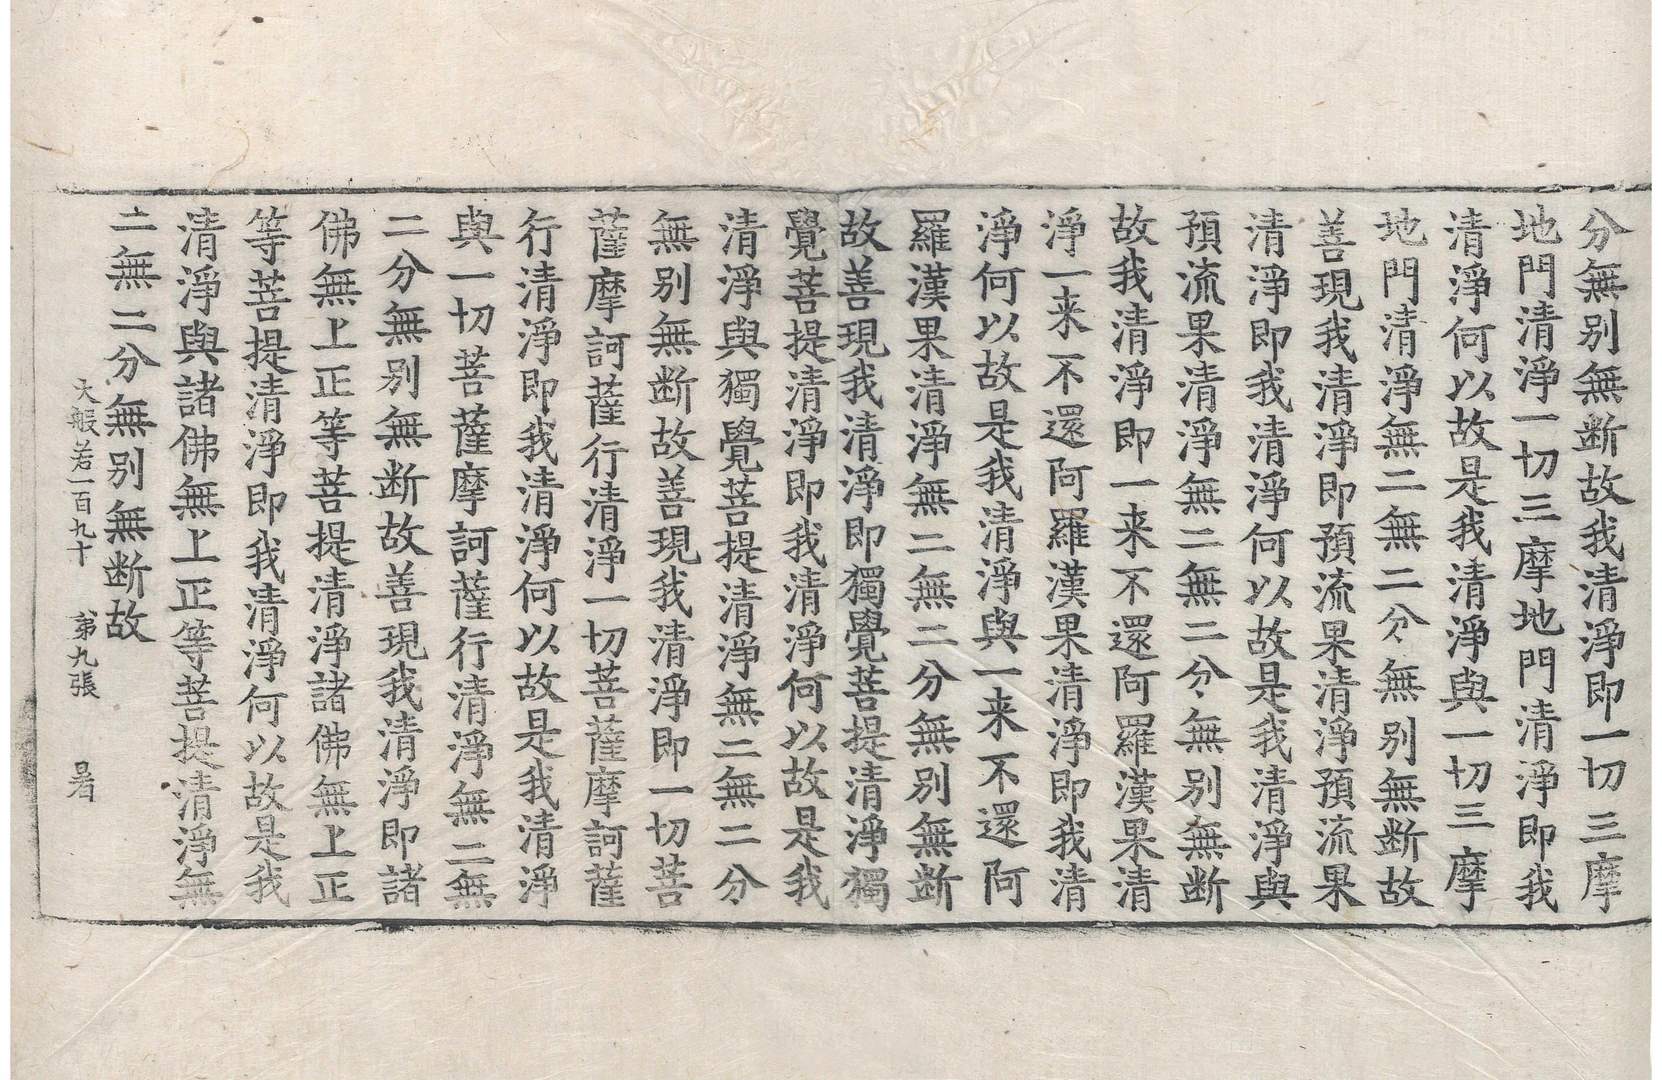 分無別無断故我清淨即一切三摩
地門清淨一切三摩地門清淨即我
清淨何以故是我清淨與一切三摩
地門清淨無二無二分無別無断故
善現我清淨即預流果清淨預流果
清淨即我清淨何以故是我清淨與
預流果清淨無二無二分無別無断
故我清淨即一来不還阿羅漢果清
淨一来不還阿羅漢果清淨即我清
淨何以故是我清淨與一来不還阿
羅漢果清淨無二無二分無別無断
故善現我清淨即獨覺菩提清淨獨
覺菩提清淨即我清淨何以故是我
清淨與獨覺菩提清淨無二無二分
無別無断故善現我清淨即一切菩
薩摩訶薩行清淨一切菩薩摩訶薩
行清淨即我清淨何以故是我清淨
與一切菩薩摩訶薩行清淨無二無
二分無別無断故善現我清淨即諸
佛無上正等菩提清淨諸佛無上正
等菩提清淨即我清淨何以故是我
清淨與諸佛無上正等菩提清淨無
二無二分無別無断故
大般若一百九十 第九張